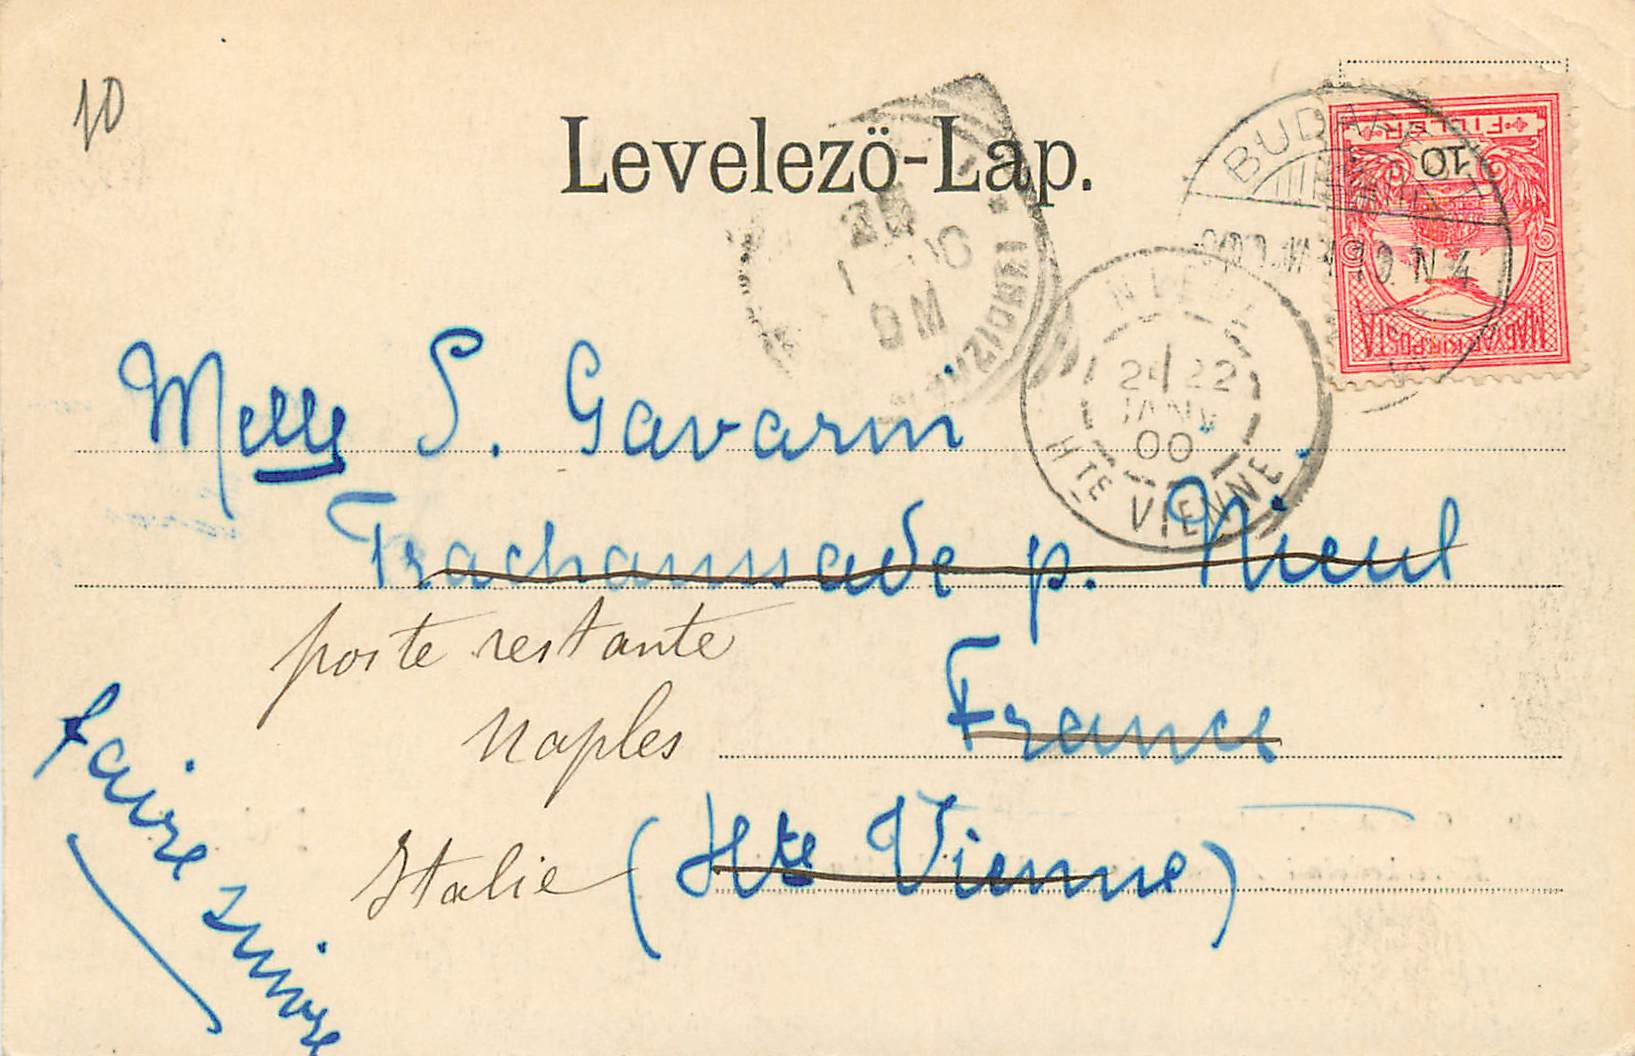 10
Levelezö-Lap.
BUDAPEST
10
FILLÉR
MAGYAR KIR. POSTA
900
10 N 4
25
1 00
NIEUL
24 22
JANV
00
HTE VIENNE
Melle S. Gavarin
p. Nieul
poste restante
France
Naples
Italie (Hte Vienne)
faire suivre